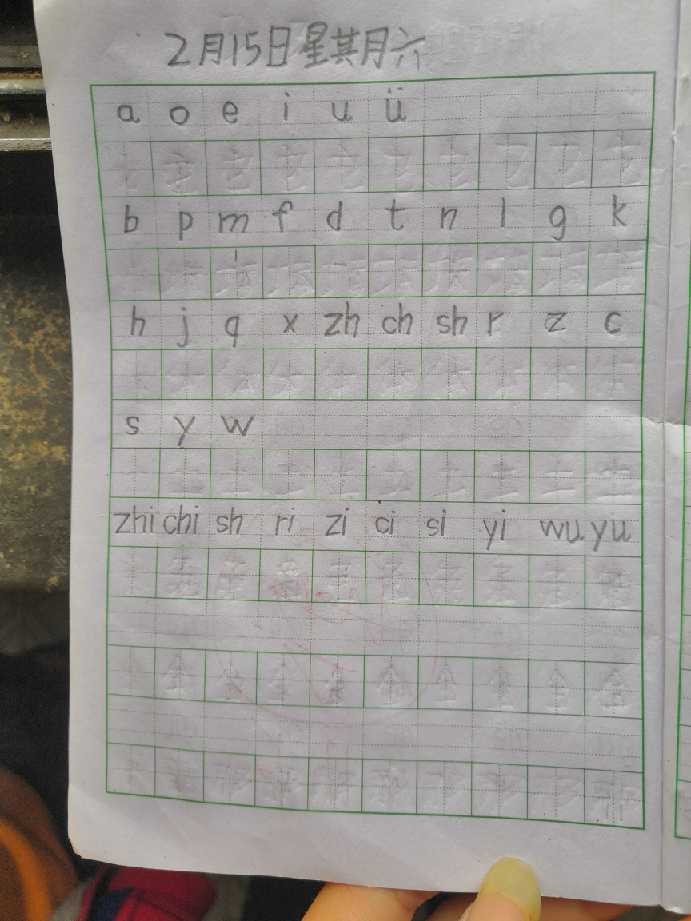 2月15日星其月六
a o e i u ü
b p m f d t n l g k
h j q x zh ch sh r z c
s y w
zhi chi sh ri zi ci si yi wu yu